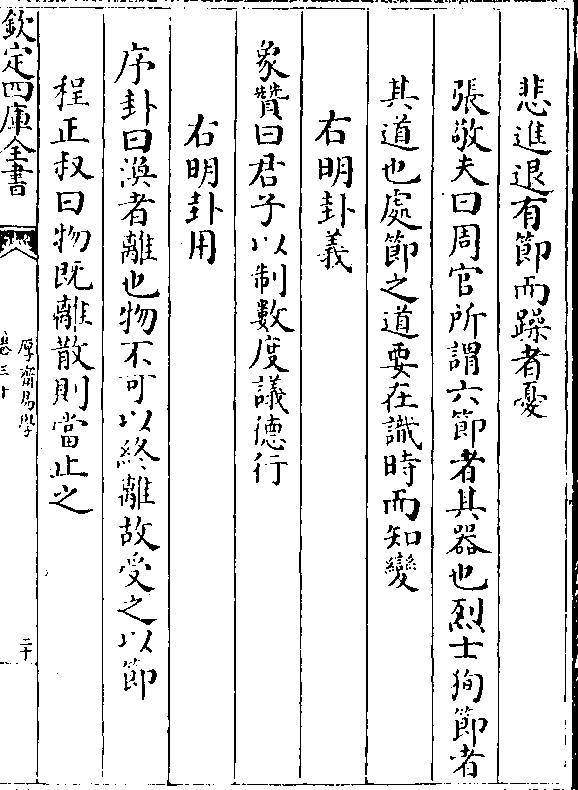 悲進退有節而躁者憂
張敬夫曰周官所謂六節者其器也烈士狥節者
其道也處節之道要在識時而知變
右明卦義
象贊曰君子以制數度議德行
右明卦用
序卦曰渙者離也物不可以終離故受之以節
程正叔曰物既離散則當止之
欽定四庫全書
厚齋易學
卷三十
二十